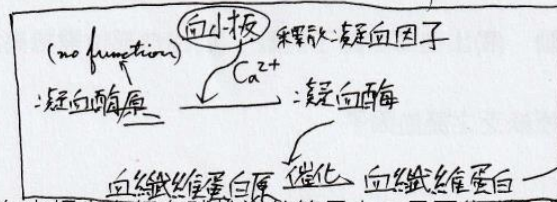 血小板 釋放凝血因子
(no function) Ca²⁺
凝血酶原 凝血酶
血纖維蛋白原 催化 血纖維蛋白